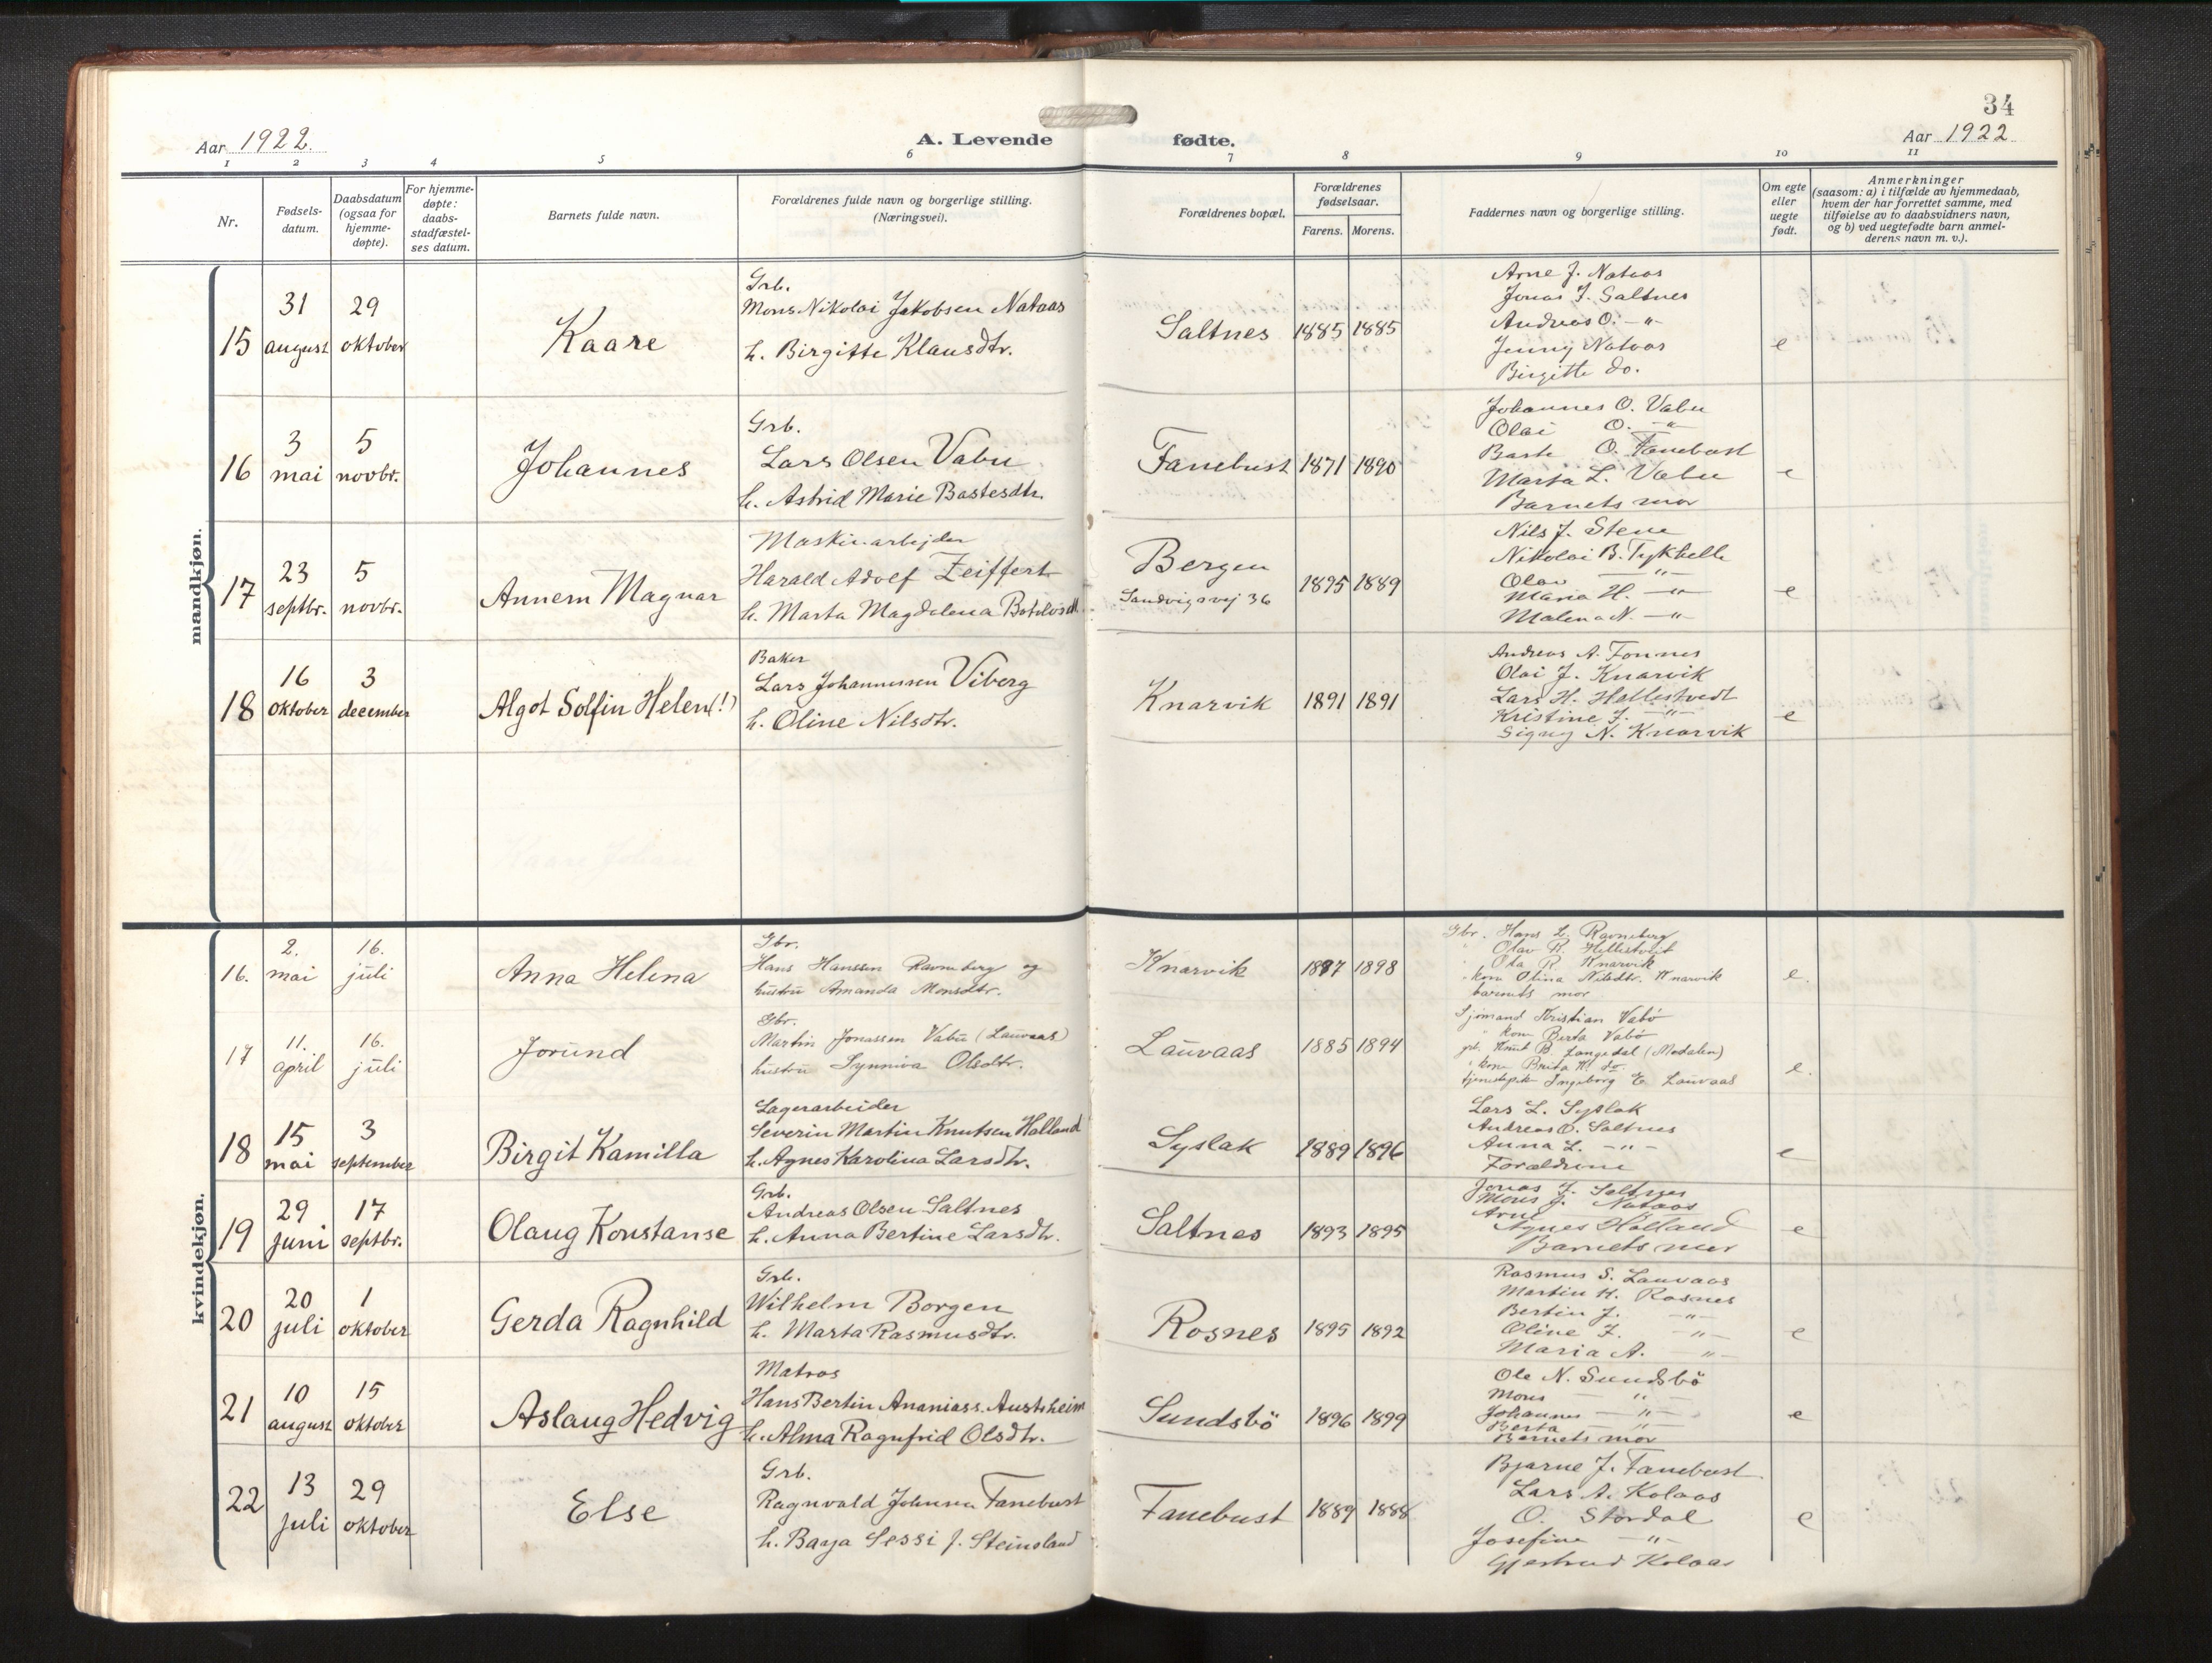 34
Aar 1922.
A. Levende fødte.
Aar 1922
1 2 3 4 5 6 7 8 9 10 11
Nr.
Fødsels-
datum.
Daabsdatum
(ogsaa for
hjemme-
døpte).
For hjemme-
døpte:
daabs-
stadfæstel-
ses datum.
Barnets fulde navn.
Forældrenes fulde navn og borgerlige stilling.
(Næringsvei).
Forældrenes bopæl.
Forældrenes
fødselsaar.
Farens. Morens.
Faddernes navn og borgerlige stilling.
Om egte
eller
uegte
født.
Anmerkninger
(saasom: a) i tilfælde av hjemmedaab,
hvem der har forrettet samme, med
tilføielse av to daabsvidners navn,
og b) ved uegtefødte barn anmel-
derens navn m. v.).
mandkjøn.
15
31
august
29
oktober
Kaare
Grb.
Mons Nikolai Jakobsen Nataas
h. Birgitte Klausdtr.
Saltnes
1885 1885
Arne J. Nataas
Jonas J. Saltnes
Andreas O. —"—
Jenny Nataas
Birgitte do.
e
16
3
mai
5
novbr.
Johannes
Grb.
Lars Olsen Vabu
h. Astrid Marie Bastesdtr.
Fanebust
1871 1890
Johannes O. Vabu
Olai O. —"—
Baste O. Fanebust
Marta L. Vabu
Barnets mor
e
17
23
septbr.
5
novbr.
Annem Magnar
Maskinarbejder
Harald Adolf Zeiffert
h. Marta Magdalena Botolvsdtr
Bergen
Sandvigsvej 36
1895 1889
Nils J. Stene
Nikolai B. Tykhelle
Olav —"—
Maria H. —"—
Malena N. —"—
e
18
16
oktober
3
december
Algot Solfin Helen(!)
Baker
Lars Johannessen Viberg
h. Oline Nilsdtr.
Knarvik
1891 1891
Andreas A. Fonnes
Olai J. Knarvik
Lars H. Hellestvedt
Kristine J. —"—
Signy N. Knarvik
e
kvindekjøn.
16.
2.
mai
16.
juli
Anna Helena
Gbr.
Hans Hanssen Ravneberg og
hustru Amanda Monsdtr.
Knarvik
1897 1898
Gbr. Hans L. Ravneberg
" Olav R. Hellestveit
" Ola R. Knarvik
kone Olina Nilsdtr. Knarvik
barnets mor
e.
17
11.
april
16.
juli
Jorund
Gbr.
Martin Jonassen Vabu (Lauvaas)
hustru Synniva Olsdtr.
Lauvaas
1885 1894
Sjømand Kristian Vabø
" kone Berta Vabø
gb. Knut B. Langedal (Modalen)
" kone Brita K. do.
tjenestepik Ingeborg E. Lauvaas
e.
18
15
mai
3
september
Birgit Kamilla
Lagerarbeider
Severin Martin Knutsen Halland
h. Agnes Karolina Larsdtr.
Syslak
1889 1896
Lars L. Syslak
Andreas O. Saltnes
Anna L. —"—
Forældrene
e
19
29
juni
17
septbr.
Olaug Konstanse
Grb.
Andreas Olsen Saltnes
h. Anna Bertine Larsdtr.
Saltnes
1893 1895
Jonas J. Saltnes
Mons J. Nataas
Arne
Agnes Holland
Barnets mor
e
20
20
juli
1
oktober
Gerda Ragnhild
Grb.
Wilhelm Borgen
h. Marta Rasmusdtr.
Rosnes
1895 1892
Rasmus S. Lauvaas
Martin H. Rosnes
Bertin J. —"—
Oline J. —"—
Maria A. —"—
e
21
10
august
15
oktober
Aslaug Hedvig
Matros
Hans Bertin Ananiass. Austrheim
h. Alma Ragnfrid Olsdtr.
Sundsbö
1896 1899
Ole N. Sundsbö
Mons —"—
Johannes —"—
Berta —"—
Barnets mor
e
22
13
juli
29
oktober
Else
Grb.
Ragnvald Johnsen Fanebust
h. Baaja Sessi J. Steinsland
Fanebust
1889 1888
Bjarne J. Fanebust
Lars A. Kolaas
O. Stordal
Josefine —"—
Gjertrud Kolaas
e